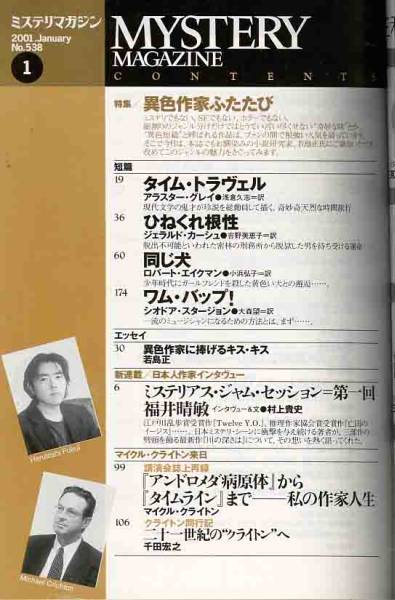 ミステリマガジン
2001.January
No.538
1
MYSTERY
MAGAZINE
CONTENTS
特集/異色作家ふたたび
ミステリでもない、SFでもない、ホラーでもない。
短篇
19 タイム・トラヴェル
アラスター・グレイ●浅倉久志=訳
36 ひねくれ根性
ジェラルド・カーシュ●吉野美恵子=訳
脱出不可能といわれた密林の刑務所から脱獄した男を待ち受ける運命
60 同じ犬
ロバート・エイクマン●小浜弘子=訳
少年時代にガールフレンドを殺した黄色い犬との邂逅……。
174 ワム・バップ!
シオドア・スタージョン●大森望=訳
一流のミュージシャンになるための方法とは、まず……。
エッセイ
30 異色作家に捧げるキス・キス
若島正
新連載/日本人作家インタヴュー
6 ミステリアス・ジャム・セッション=第一回
福井晴敏 インタヴュー&文●村上貴史
マイクル・クライトン来日
99 講演会誌上再録
『アンドロメダ病原体』から
『タイムライン』まで――私の作家人生
マイクル・クライトン
106 クライトン同行記
二十一世紀の“クライトン”へ
千田宏之
Harutoshi Fukui
Michael Crichton